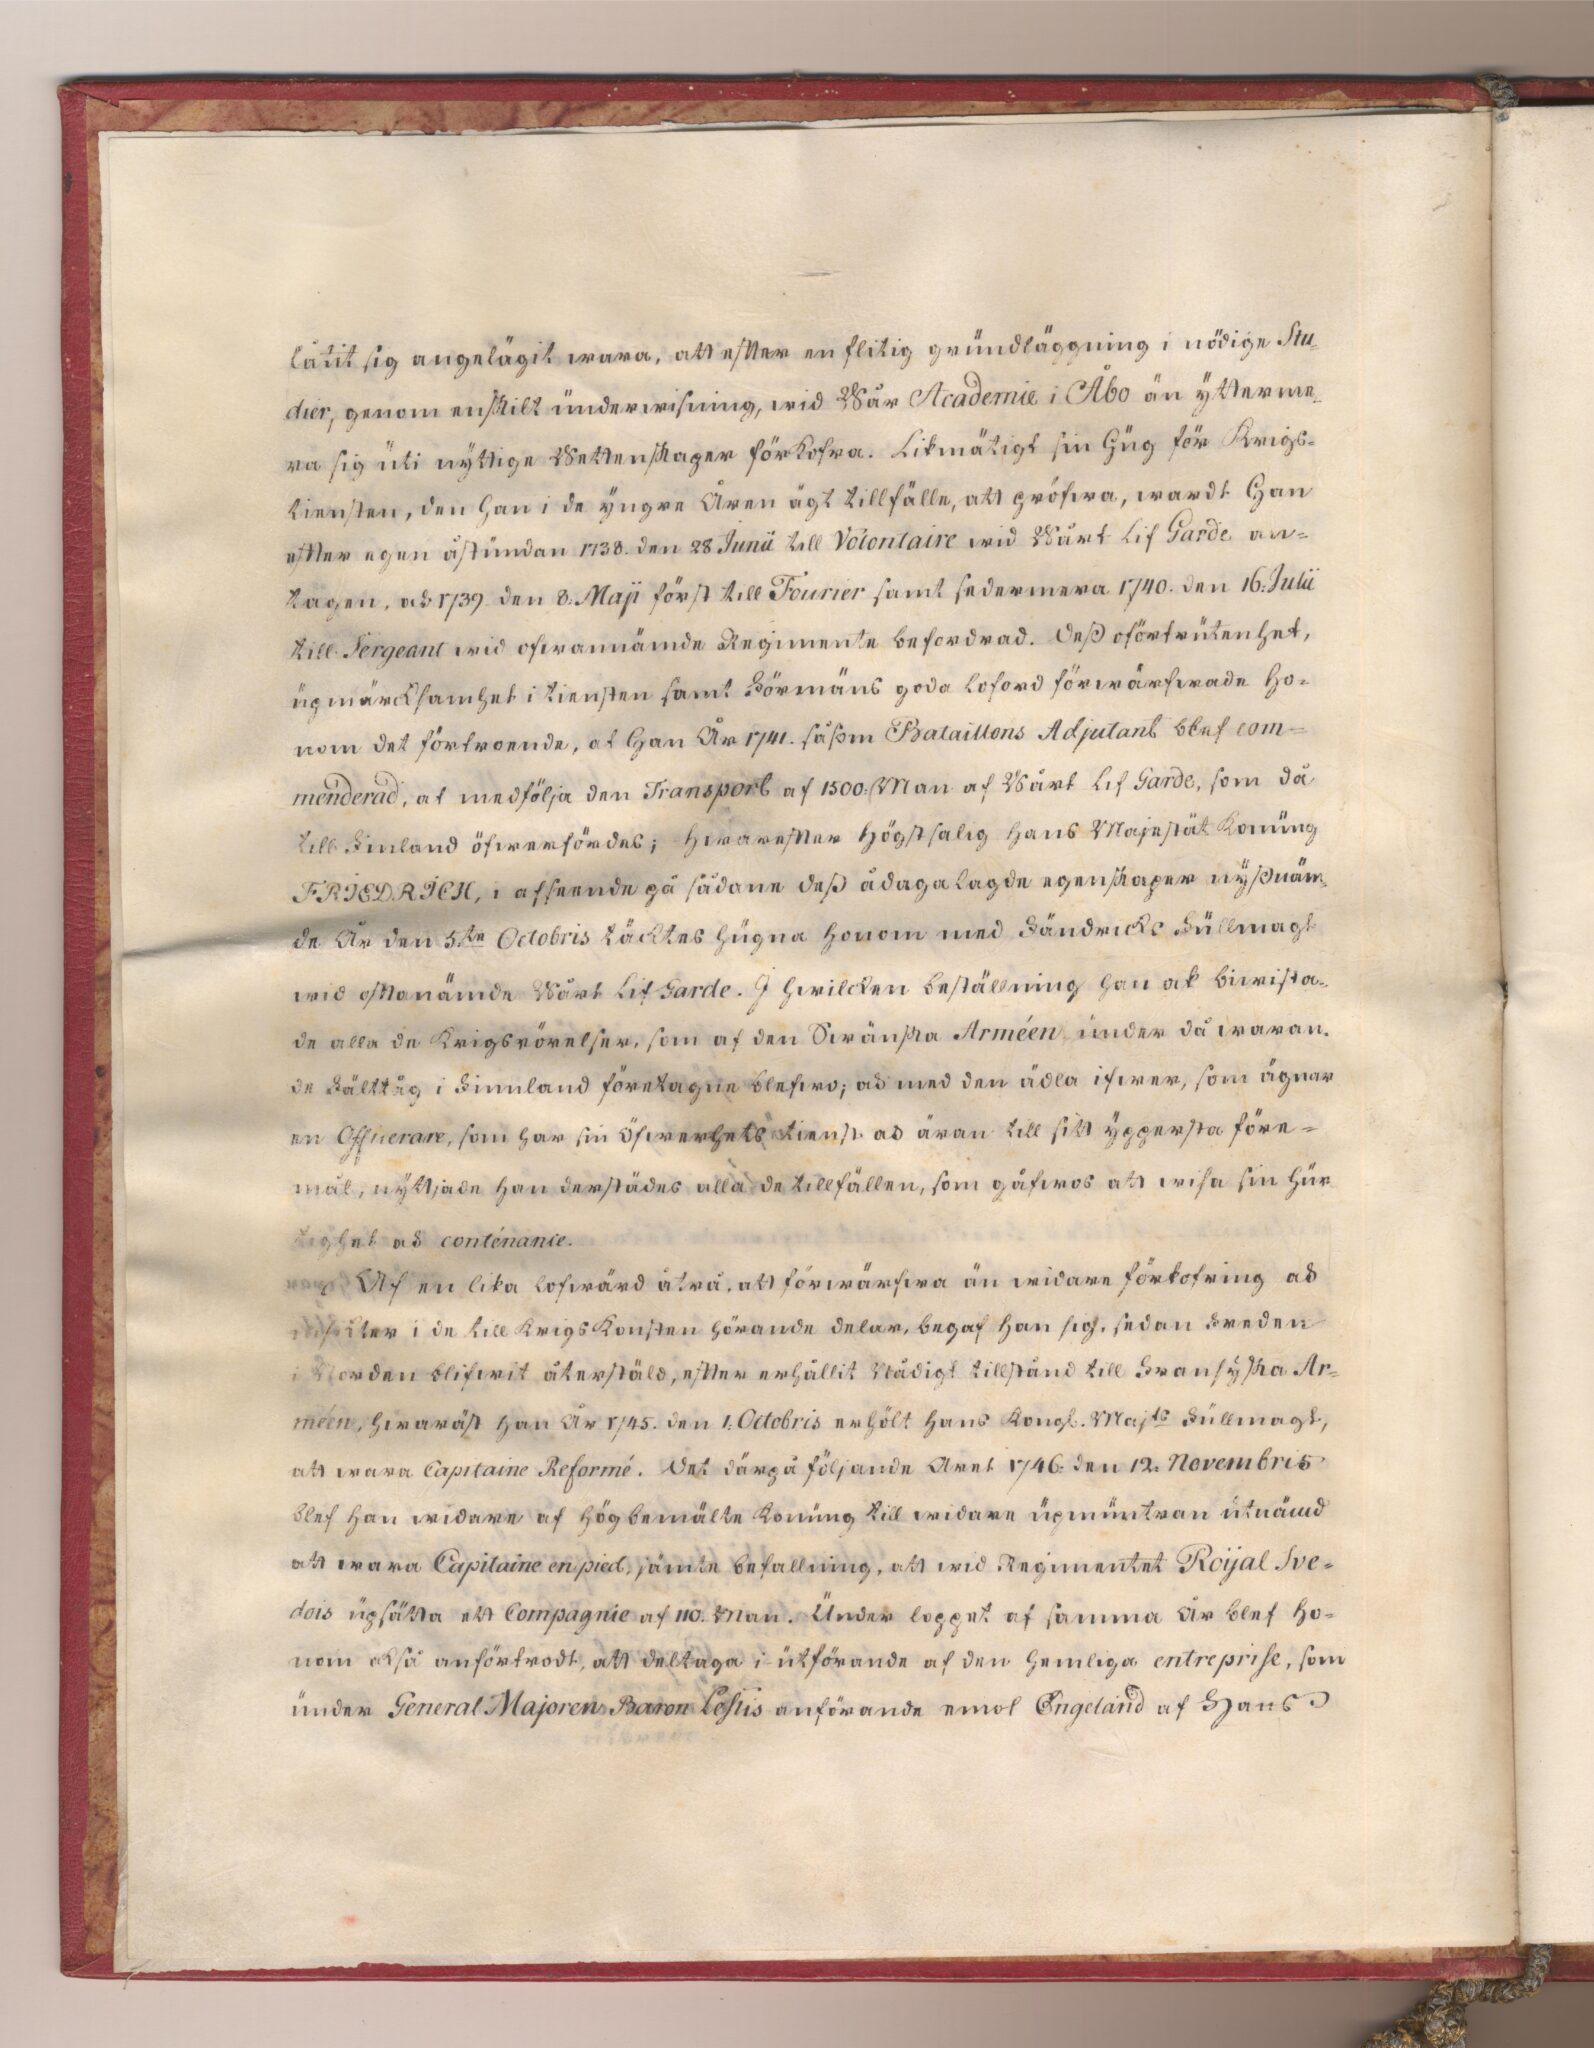 låtit sig angelägit wara, att efter en flitig gründläggning i nödige Stu-
dier, genom enskilt ünderwisning, wid Wår Academie i Åbo än ÿtterme-
ra sig üti nÿttige Wettenskaper förkofra. Likmätigt sin Hüg för Krigs-
tiensten, den Han i de ÿngre Åren ägt tillfälle, att pröfwa, wardt Han
efter egen åstündan 1738. den 28 Junii till Volontaire wid Wårt Lif Garde an-
tagen, ock 1739. den 8. Maji först till Fourier samt sedermera 1740. den 16. Julii
till Sergeant wid ofwannämde Regimente befordrad. Dess oförtrütenhet,
üpmärcksamhet i tiensten samt Förmäns goda loford förwärfwade ho-
nom det förtroende, at Han År 1741. såsom Bataillons Adjutant blef com-
menderad, at medfölja den Transport af 1500. Man af Wårt Lif Garde, som då
till Finland öfwerfördes; hwarefter högstsalig Hans Majestät Konüng
FRIEDRICH, i afseende på sådane dess ådagalagde egenskaper nÿssnäm-
de År den 5te Octobris täcktes hügna honom med Fändricks Füllmagt
wid oftanämde Wårt Lif Garde. I hwilcken beställning han ock biwista-
de alla de Krigsrörelser, som af den Swänska Arméen ünder då waran-
de Fälttåg i Finnland företagne blefwo; och med den ädla ifwer, som ägnar
en Officerare, som har sin Öfwerhets tienst och äran till sitt ÿppersta före-
mål, nÿttjade han derstädes alla de tillfällen, som gåfwos att wisa sin hür
tighet och conténance.
Af en lika lofwärd åtrå, att förwärfwa än widare förkofring och
insickter i de till KrigsKonsten hörande delar, begaf han sig, sedan Freden
i Norden blifwit återstäld, efter erhållit Nådigt tillstånd till Fransÿska Ar-
méen, hwaräst han År 1745. den 1. Octobris erhölt Hans Kongl. Majts Füllmagt,
att wara Capitaine Reformé. Det därpå följande Året 1746. den 12. Novembris
blef han widare af högbemälte Konüng till widare üpmüntran ütnämd
att wara Capitaine en pied, jämte befallning, att wid Regimentet Roijal Sve-
dois üpsätta ett Compagnie af 110. Man. Ünder loppet af samma År blef ho-
nom också anförtrodt, att deltaga i ütförande af den hemliga entreprise, som
ünder General Majoren Baron Leslis anförande emot Engeland af Hans